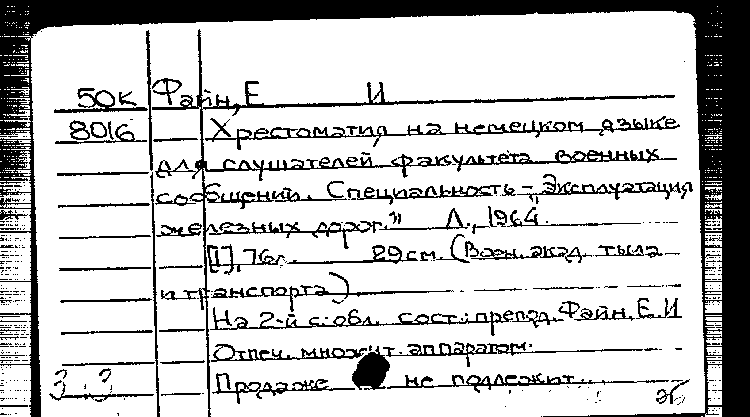 50К Файн, Е И
8016 Хрестоматия на немецком языке
для слушателей факультета военных
сообщений. Специальность – „Эксплуатация
железных дорог." Л., 1964.
[1], 76л. 29см. (Воен. акад. тыла
и транспорта)
На 2-й с. обл. сост.: препод. Файн, Е. И
Отпеч. множит. аппаратом.
Продаже не подлежит.
3 3